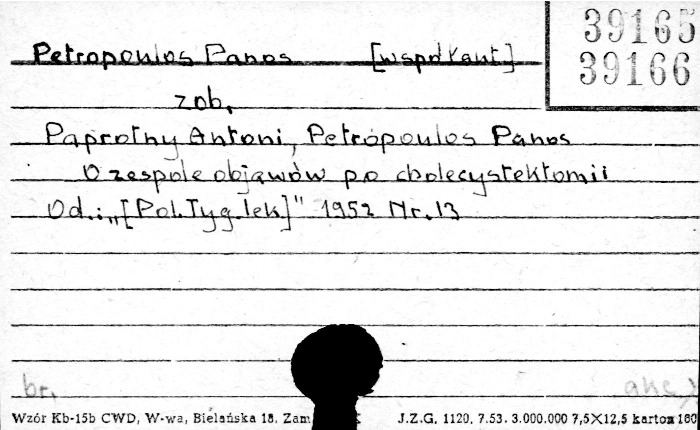 39165
39166
Petropoulos Panos [współaut]
zob.
Paprotny Antoni, Petropoulos Panos
O zespole objawów po cholecystektomii
Od.: „[Pol.Tyg.lek]" 1952 Nr. 13
br.
Wzór Kb-15b CWD, W-wa, Bielańska 18. Zam J.Z.G. 1120. 7.53. 3.000.000 7,5×12,5 karton 160